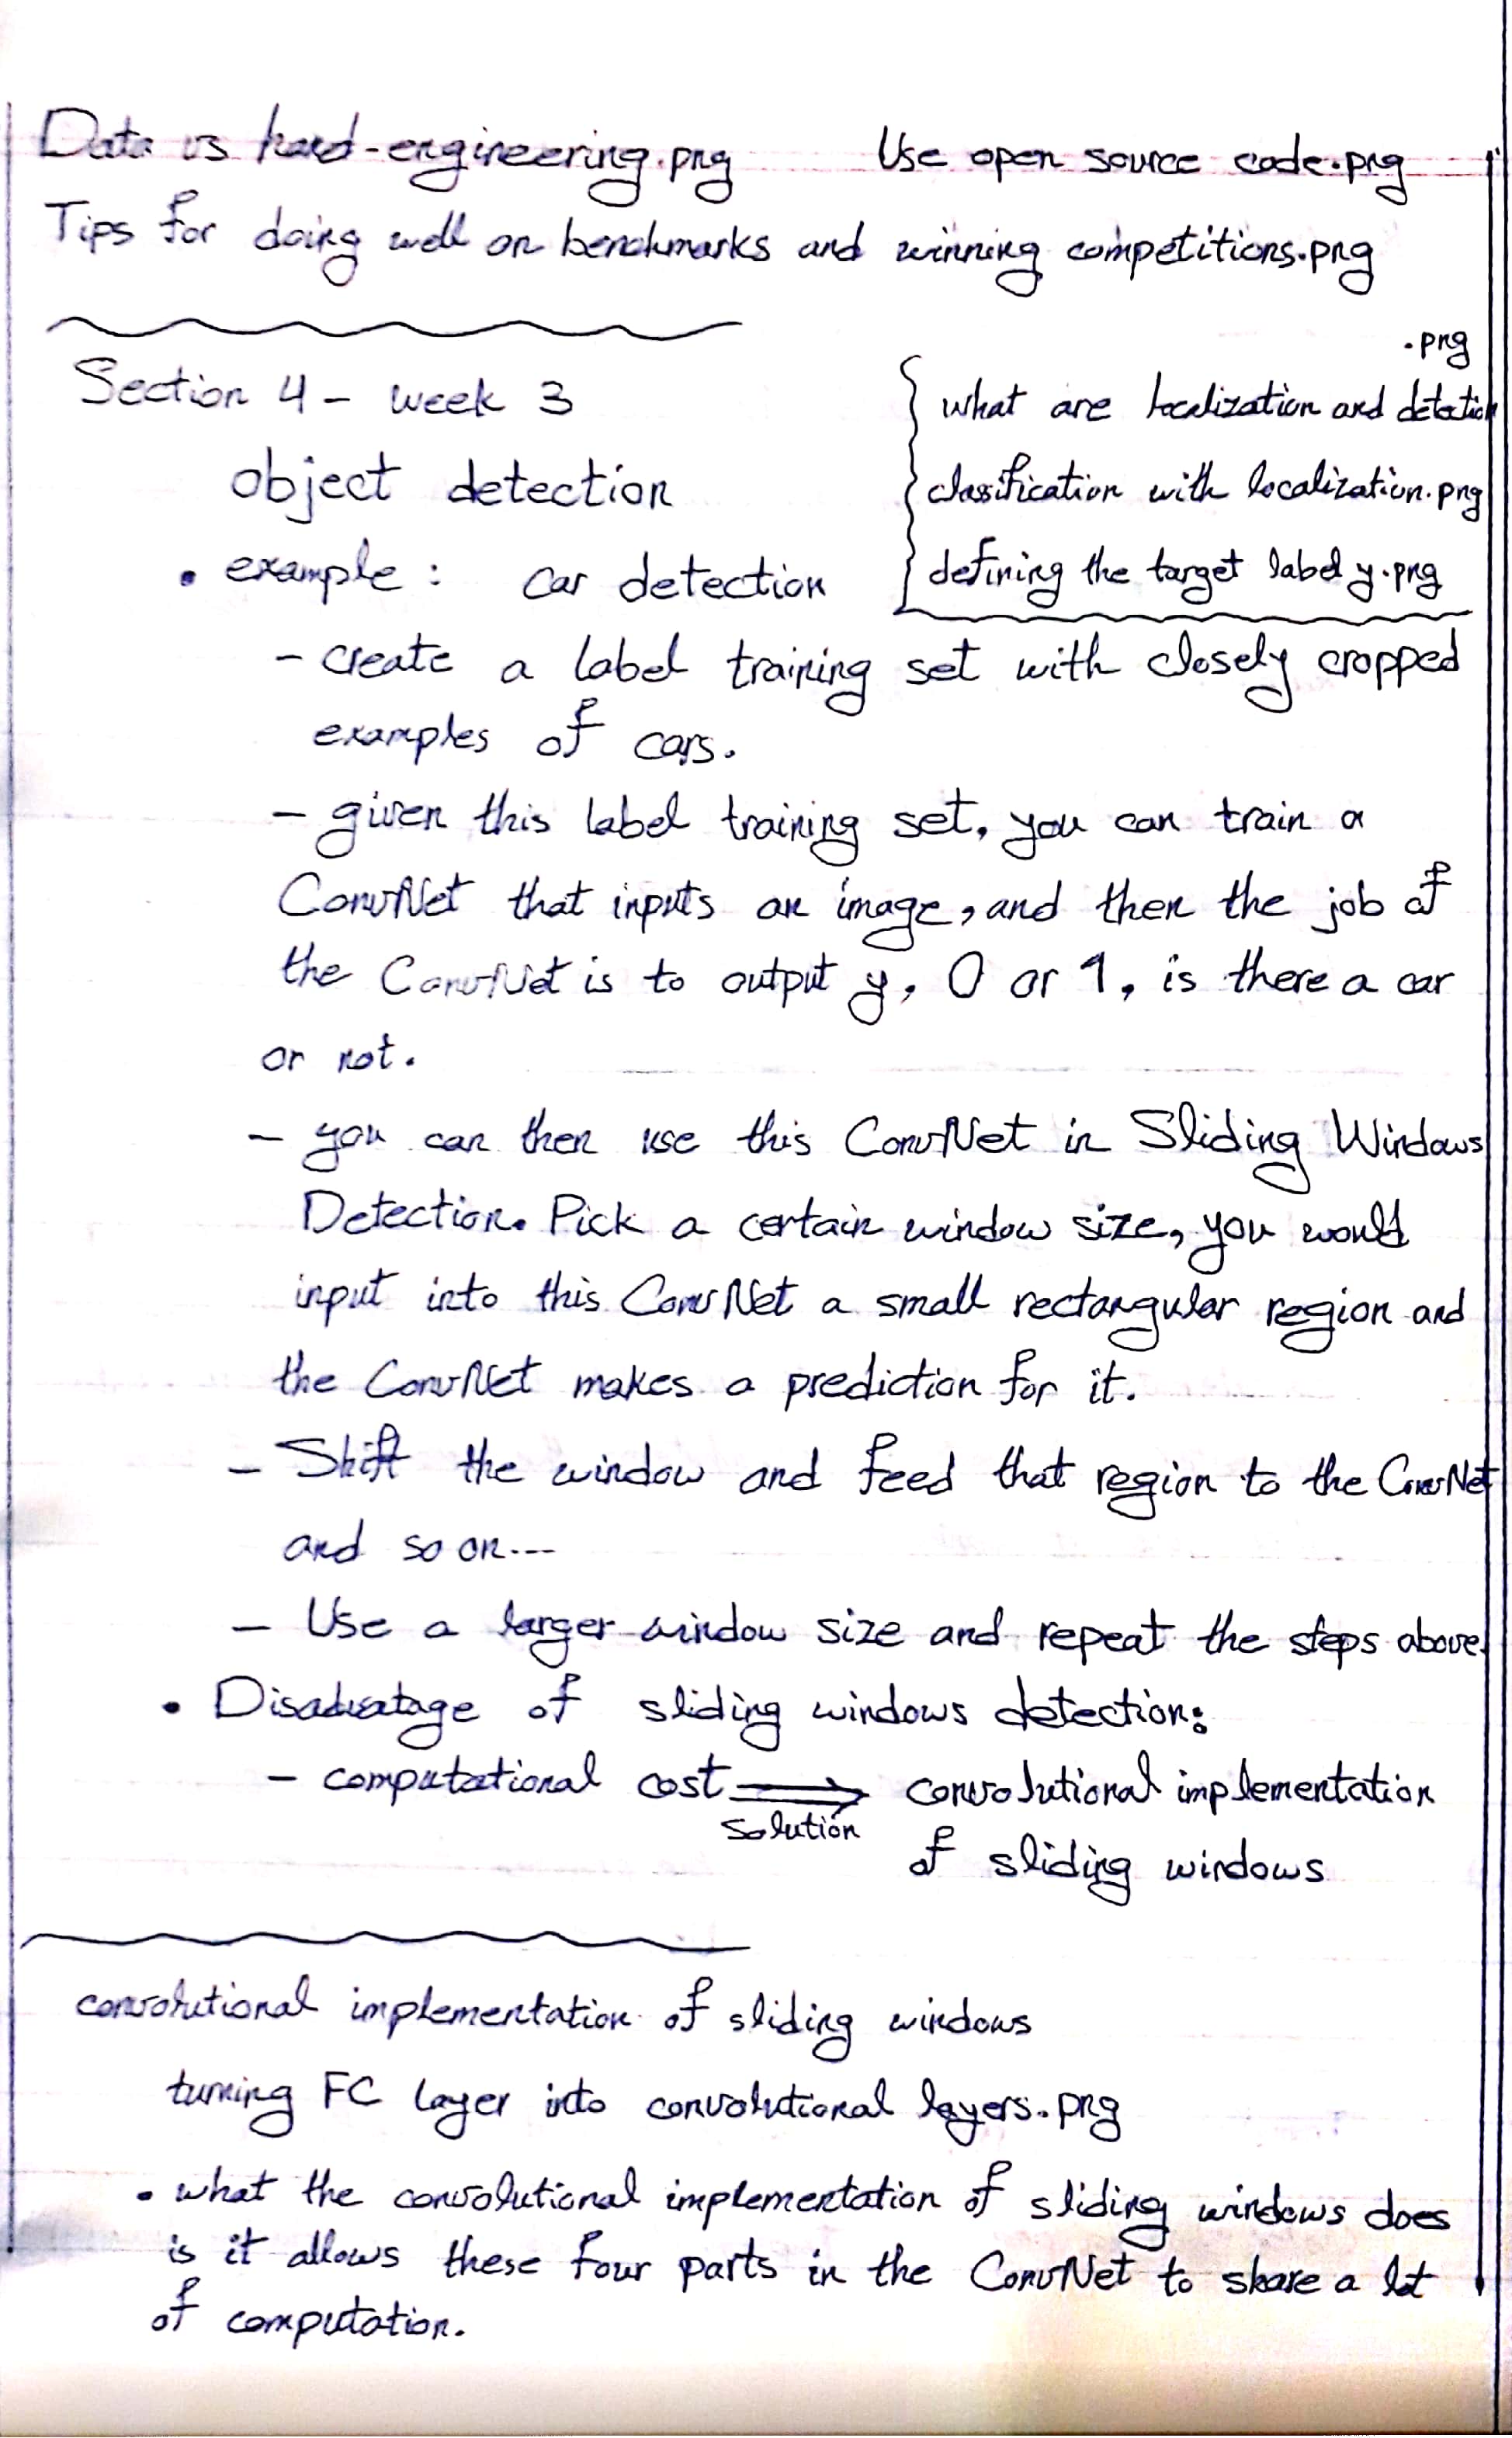 Data vs hand-engineering.png    Use open source code.png
Tips for doing well on benchmarks and winning competitions.png
Section 4 - week 3
object detection
.png
{ what are localization and detection
classification with localization.png
defining the target label y.png
• example : car detection
- create a label training set with closely cropped
examples of cars.
- given this label training set, you can train a
ConvNet that inputs an image, and then the job of
the ConvNet is to output y, 0 or 1, is there a car
or not.
- you can then use this ConvNet in Sliding Windows
Detection. Pick a certain window size, you would
input into this ConvNet a small rectangular region and
the ConvNet makes a prediction for it.
- Shift the window and feed that region to the ConvNet
and so on...
- Use a larger window size and repeat the steps above.
• Disadvatage of sliding windows detection:
- computational cost ⟹ convolutional implementation
solution
of sliding windows
convolutional implementation of sliding windows
turning FC layer into convolutional layers.png
• what the convolutional implementation of sliding windows does
is it allows these four parts in the ConvNet to share a lot
of computation.